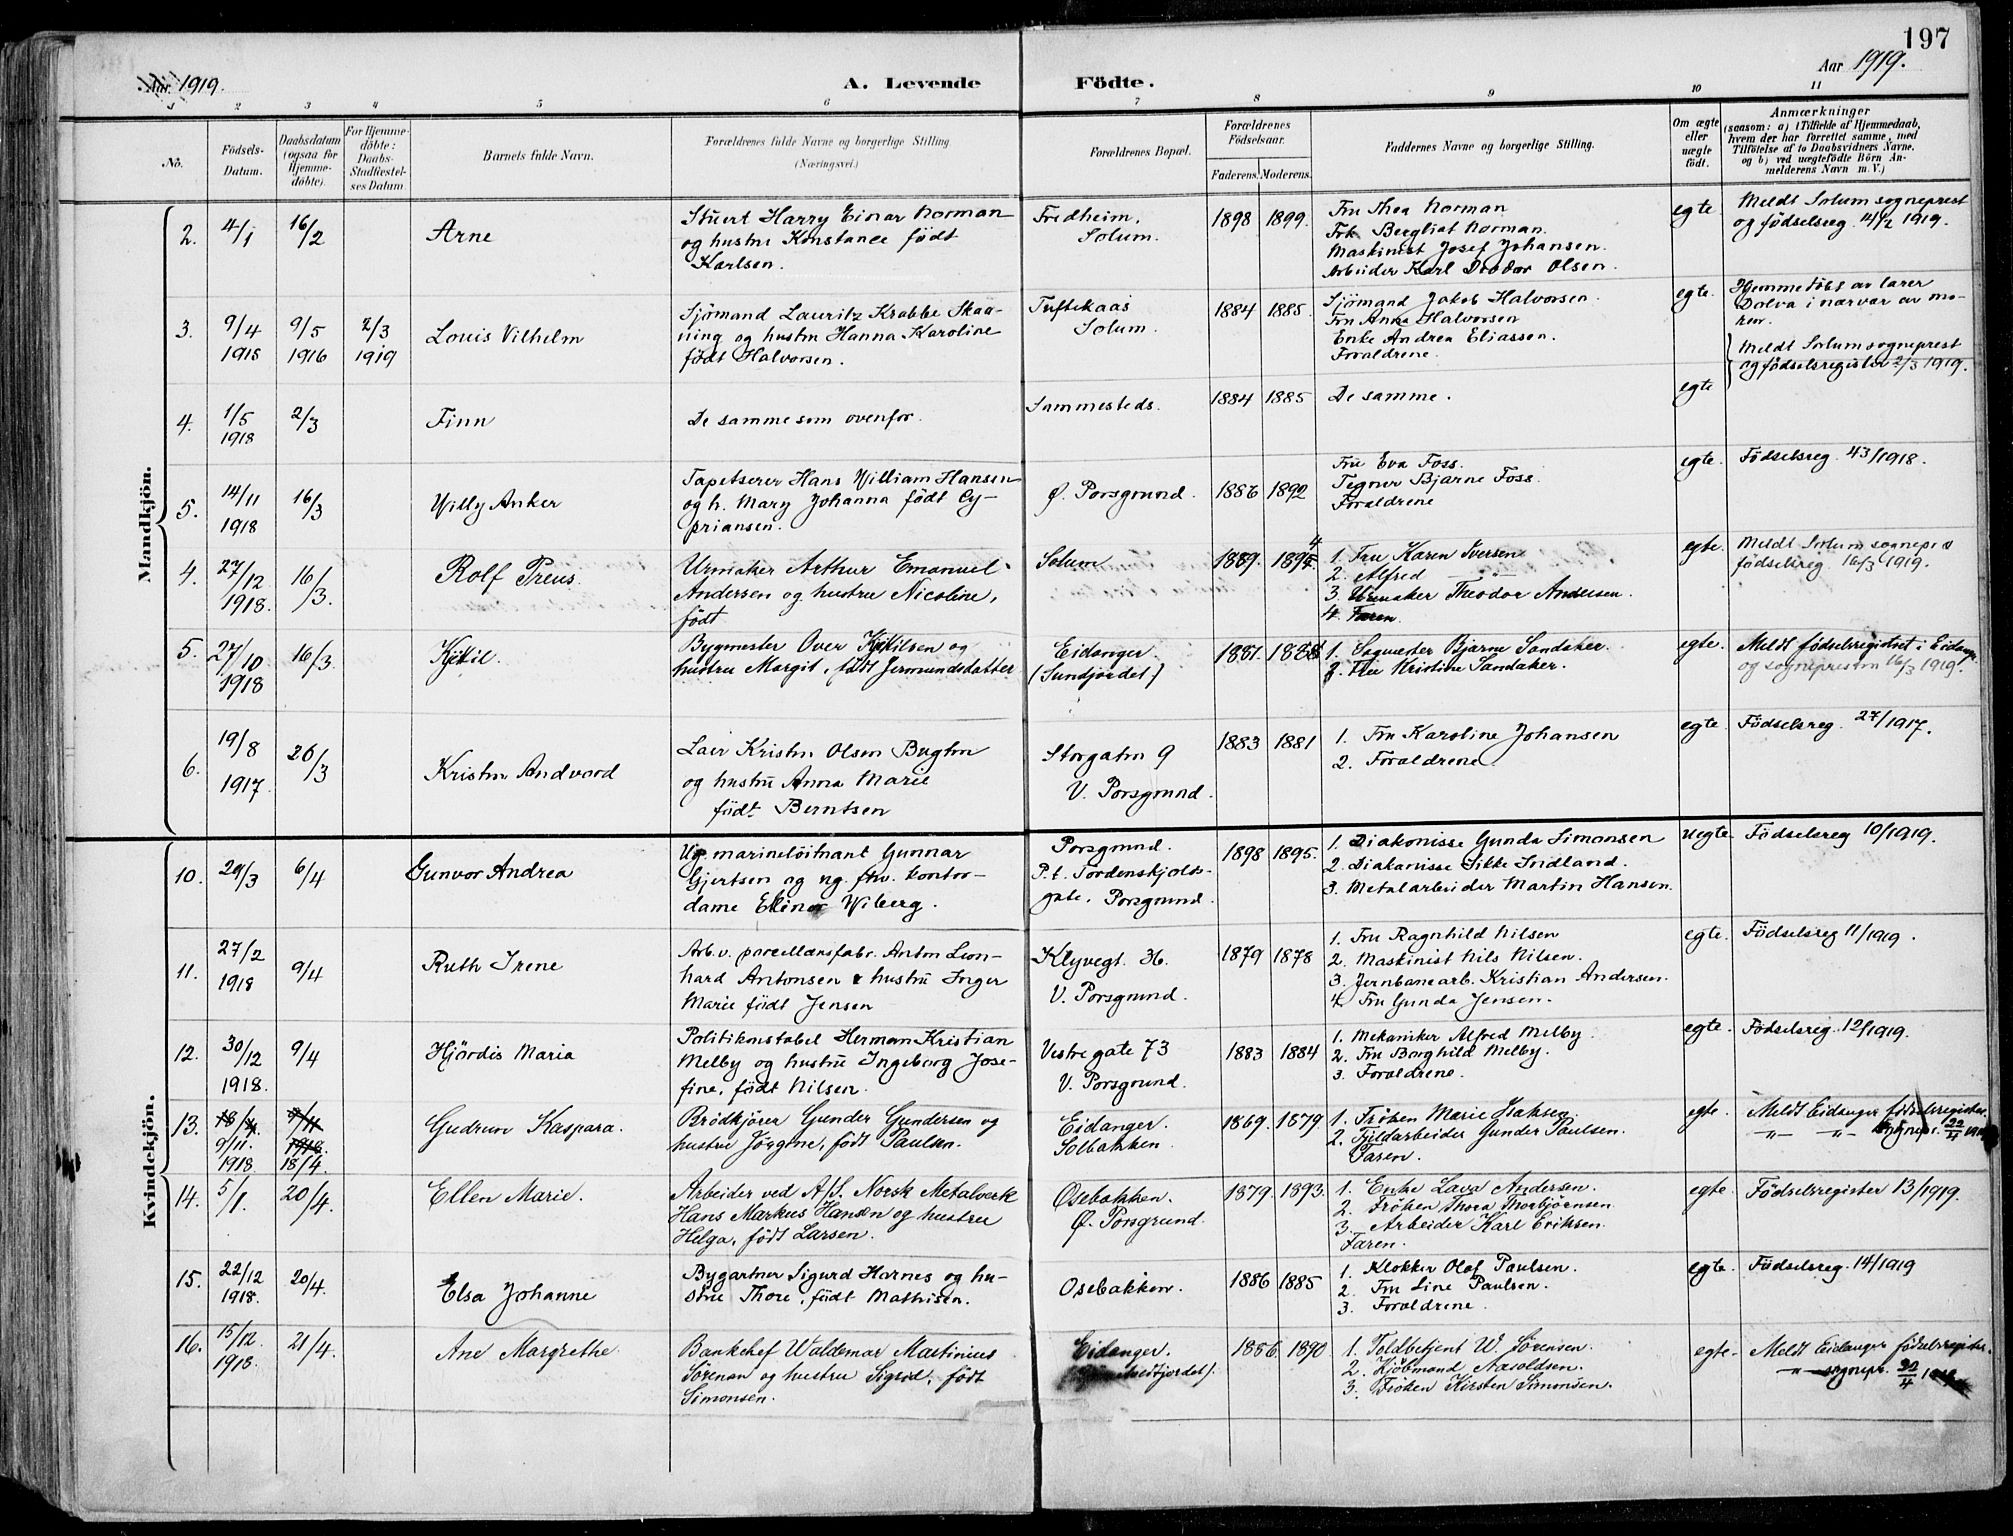 197
Aar 1919.
A. Levende Födte.
Aar 1919.
1 2 3 4 5 6 7 8 9 10 11
No.
Födsels-
Datum.
Daabsdatum
(ogsaa for
Hjemme-
döbte).
For Hjemme-
döbte:
Daabs-
Stadfæstel-
ses Datum
Barnets fulde Navn.
Forældrenes fulde Navne og borgerlige Stilling
(Næringsvei.)
Forældrenes Bopæl.
Forældrenes
Födselsaar.
Faderens. Moderens.
Faddernes Navne og borgerlige Stilling.
Om ægte
eller
uægte
födt.
Anmærkninger
(saasom: a) i Tilfælde af Hjemmedaab,
hvem der har forrettet samme, med
Tilföielse af to Daabsvidners Navne,
og b) ved uægtefödte Börn An-
melderens Navn m. V.)
Mandkjön.
2. 4/1 16/2 Arne
Stuert Harry Einar Norman
og hustru Konstance född
Karlsen.
Fredheim.
Solum.
1898 1899.
Fru Thea Norman
Frk. Bergliot Norman.
Maskinist Josef Johansen.
Arbeider Karl Teodor Olsen.
egte
Meldt Solum sogneprest
og födselsreg. 14/2 1919.
3. 9/4 1915 9/5 1916 2/3 1919 Louis Vilhelm
Sjömand Lauritz Krabbe Skaa-
ning og hustru Hanna Karoline
födt Halvorsen.
Tuftekaas
Solum.
1884 1885.
Sjömand Jakob Halvorsen.
Fru Anna Halvorsen
Enke Andrea Eliassen.
Foraldrene.
egte.
Hjemmedöbt av lærer
Dolva i nærvær av mo-
ren.
Meldt Solum sogneprest
og födselsregister 2/3 1919.
4. 1/5 1918 2/3 Finn
De samme som ovenfor.
Sammesteds.
1884 1885
De samme.
egte
5. 14/11 1918 16/3 Willy Anker
Tapetserer Hans William Hansen
og h. Mary Johanna födt Cy-
priansen.
Ø. Porsgrund.
1886 1892
Fru Eva Foss.
Tegner Bjarne Foss.
Foraldrene
egte.
Födselsreg. 43/1918.
4. 27/12 1918. 16/3. Rolf Preus.
Urmaker Arthur Emanuel
Andersen og hustru Nicoline,
født
Solum
1889. 1894.
1. Fru Karen Iversen
2. Alfred —
3. Urmaker Theodor Andersen.
4. Faren.
egte.
Meldt Solum sognepr. o
födselsreg. 16/3 1919.
5. 27/10 1918 16/3. Kjitil
Bygmester Over Kjitilsen og
hustru Margit, født Jermundsdatter
Eidanger.
(Sundjordet.)
1881. 1888
1. Sagmester Bjarne Sandaker.
2. Fru Kristine Sandaker.
egte.
Meldt födselsregistret i Eidange
og sognepresten 16/3 1919.
6. 19/8 1917. 26/3 Kristen Andvord
Laer Kristen Olsen Bugten
og hustru Anna Marie
födt Berntsen
Storgaten 9
V. Porsgrund.
1883 1881
1. Fru Karoline Johansen
2. Foraldrene.
egte
Födselsreg. 27/1917.
Kvindekjön.
10. 29/3 6/4 Gunvor Andrea
Ug. marinelöitnant Gunnar
Gjertsen og ug. fhv. kontor-
dame Elinor Wiberg.
Porsgrund.
P.t. Tordenskjolds-
gate. Porsgrund.
1898 1895.
1. Diakonisse Gunda Simonsen
2. Diakonisse Sikke Indland.
3. Metalarbeider Martin Hansen.
Uegte
Födselsreg 10/1919.
11. 27/2 1918 9/4 Ruth Irene
Arb. v. porcellænsfabr. Anton Leon-
hard Antonsen & hustru Inger
Marie födt Jensen
Klyvegt. 36.
V. Porsgrund.
1879 1878
1. Fru Ragnhild Nilsen
2. Maskinist Nils Nilsen.
3. Jernbanearb. Kristian Andersen.
4. Fru Gunda Jensen.
egte.
Födselsreg 11/1919.
12. 30/12 1918. 9/4 Hjördis Maria
Politikonstabel Herman Kristian
Melby og hustru Ingeborg Jose-
fine, födt Nilsen.
Vestregate 73
V. Porsgrund.
1883 1884
1. Mekaniker Alfred Melby.
2. Fru Borghild Melby.
3. Foraldrene.
egte.
Födselsreg. 12/1919.
13. 18/4 9/11. 1918 9/11 1918. 18/4. Gudrun Kaspara.
Brödkjörer Gunder Gundersen og
hustru Jörgine, født Paulsen.
Eidanger.
Solbakken.
1869. 1879
1. Frøken Marie Isaksen.
2. Fjeldarbeider Gunder Paulsen.
Faren.
egte.
Meldt Eidanger födselsregister
" — " — Sognepr. 22/4 1919
14. 5/1. 20/4. Ellen Marie.
Arbeider ved A/S. Norsk Metalverk
Hans Markus Hansen og hustru
Helga, født Larsen.
Osebakken.
Ø. Porsgrund.
1879. 1893.
1. Enke Lava Andersen.
2. Frøken Thora Thorbjörnsen
3. Arbeider Karl Eriksen.
Faren.
egte.
Födselsregister 13/1919.
15. 22/12 1918. 20/4. Elsa Johanne
Bygartner Sigurd Harnes og hu-
stru Thore, födt Mathisen.
Osebakken.
1886 1885
1. Klokker Olaf Paulsen.
2. Fru Line Paulsen.
3. Foraldrene.
egte.
Födselsreg. 14/1919
16. 15/12. 1918. 21/4. Ane Margrethe
Bankchef Waldemar Martinius
Sörensen og hustru Sigrid, födt
Simonsen.
Eidanger.
1886. 1890
1. Toldbetjent W. Sörensen.
2. Kjöbmand Aasoldsen.
3. Frøken Kirsten Simonsen.
egte.
Meldt Eidanger födselsregister.
" — sognepr. 22/4